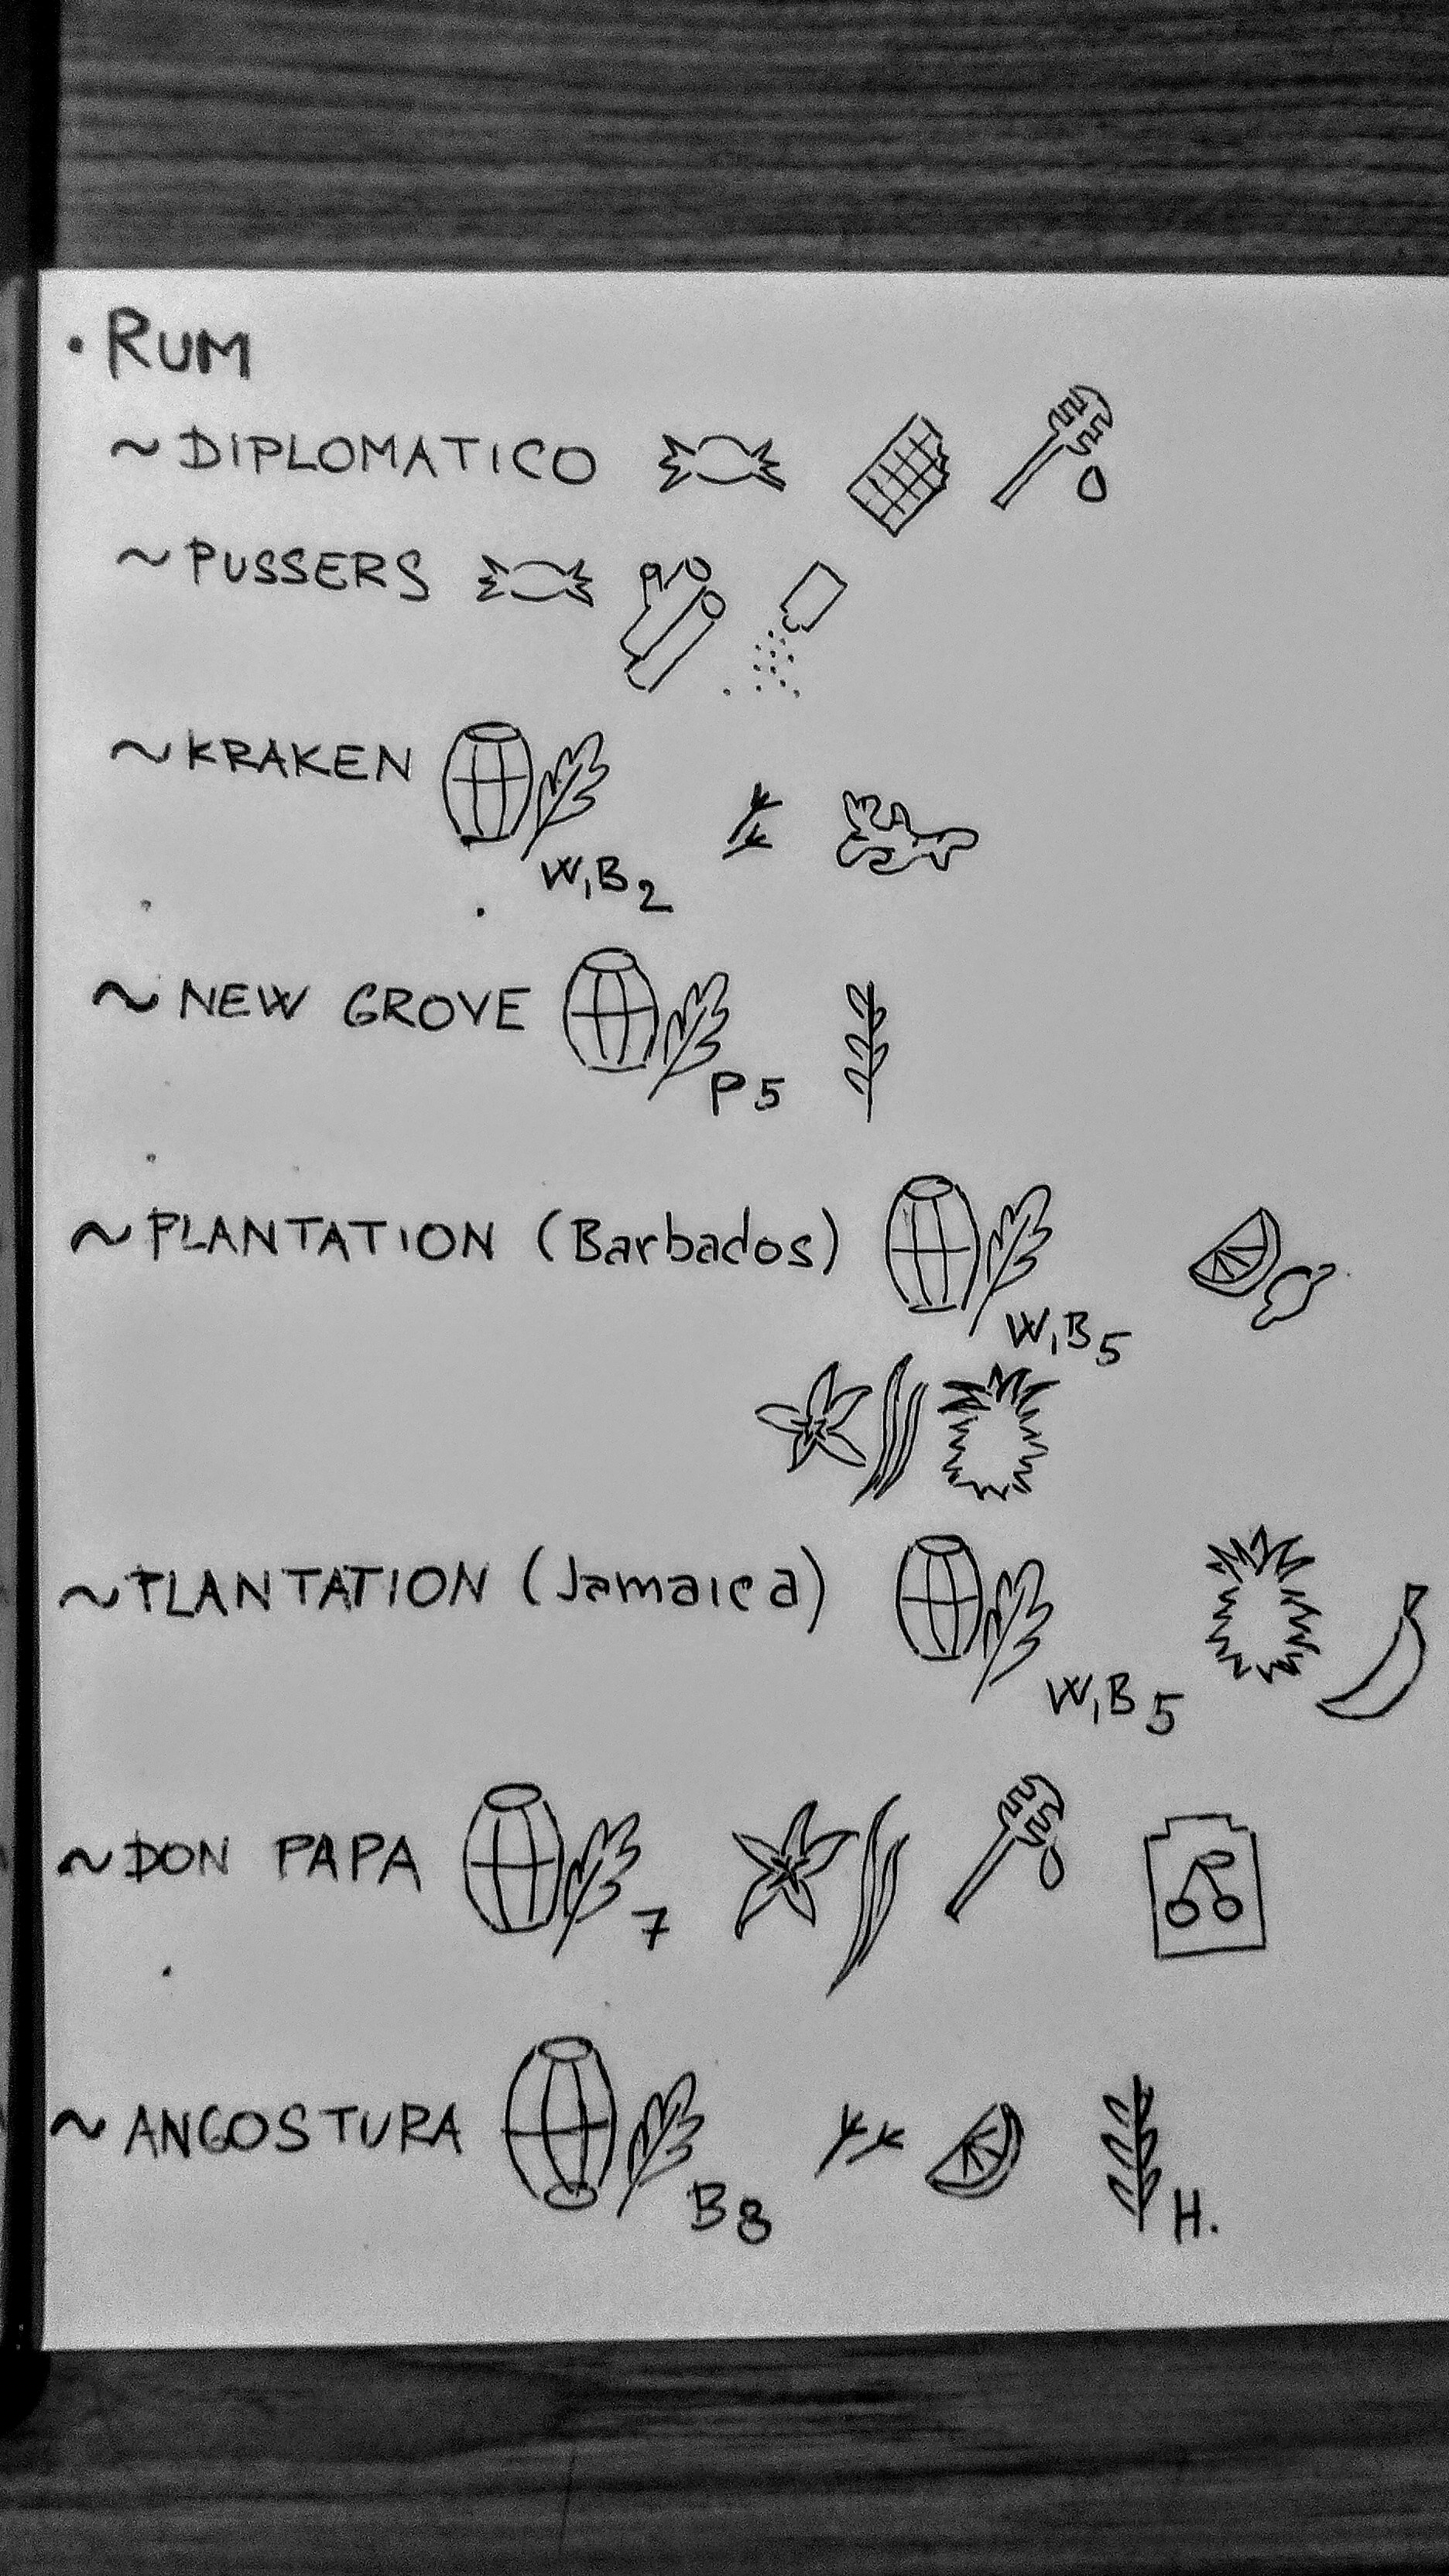 • RUM
~ DIPLOMATICO
~ PUSSERS
~ KRAKEN
W,B 2
~ NEW GROVE
P 5
~ PLANTATION (Barbados)
W,B 5
~ PLANTATION (Jamaica)
W,B 5
~ DON PAPA
7
~ ANGOSTURA
B 8
H.